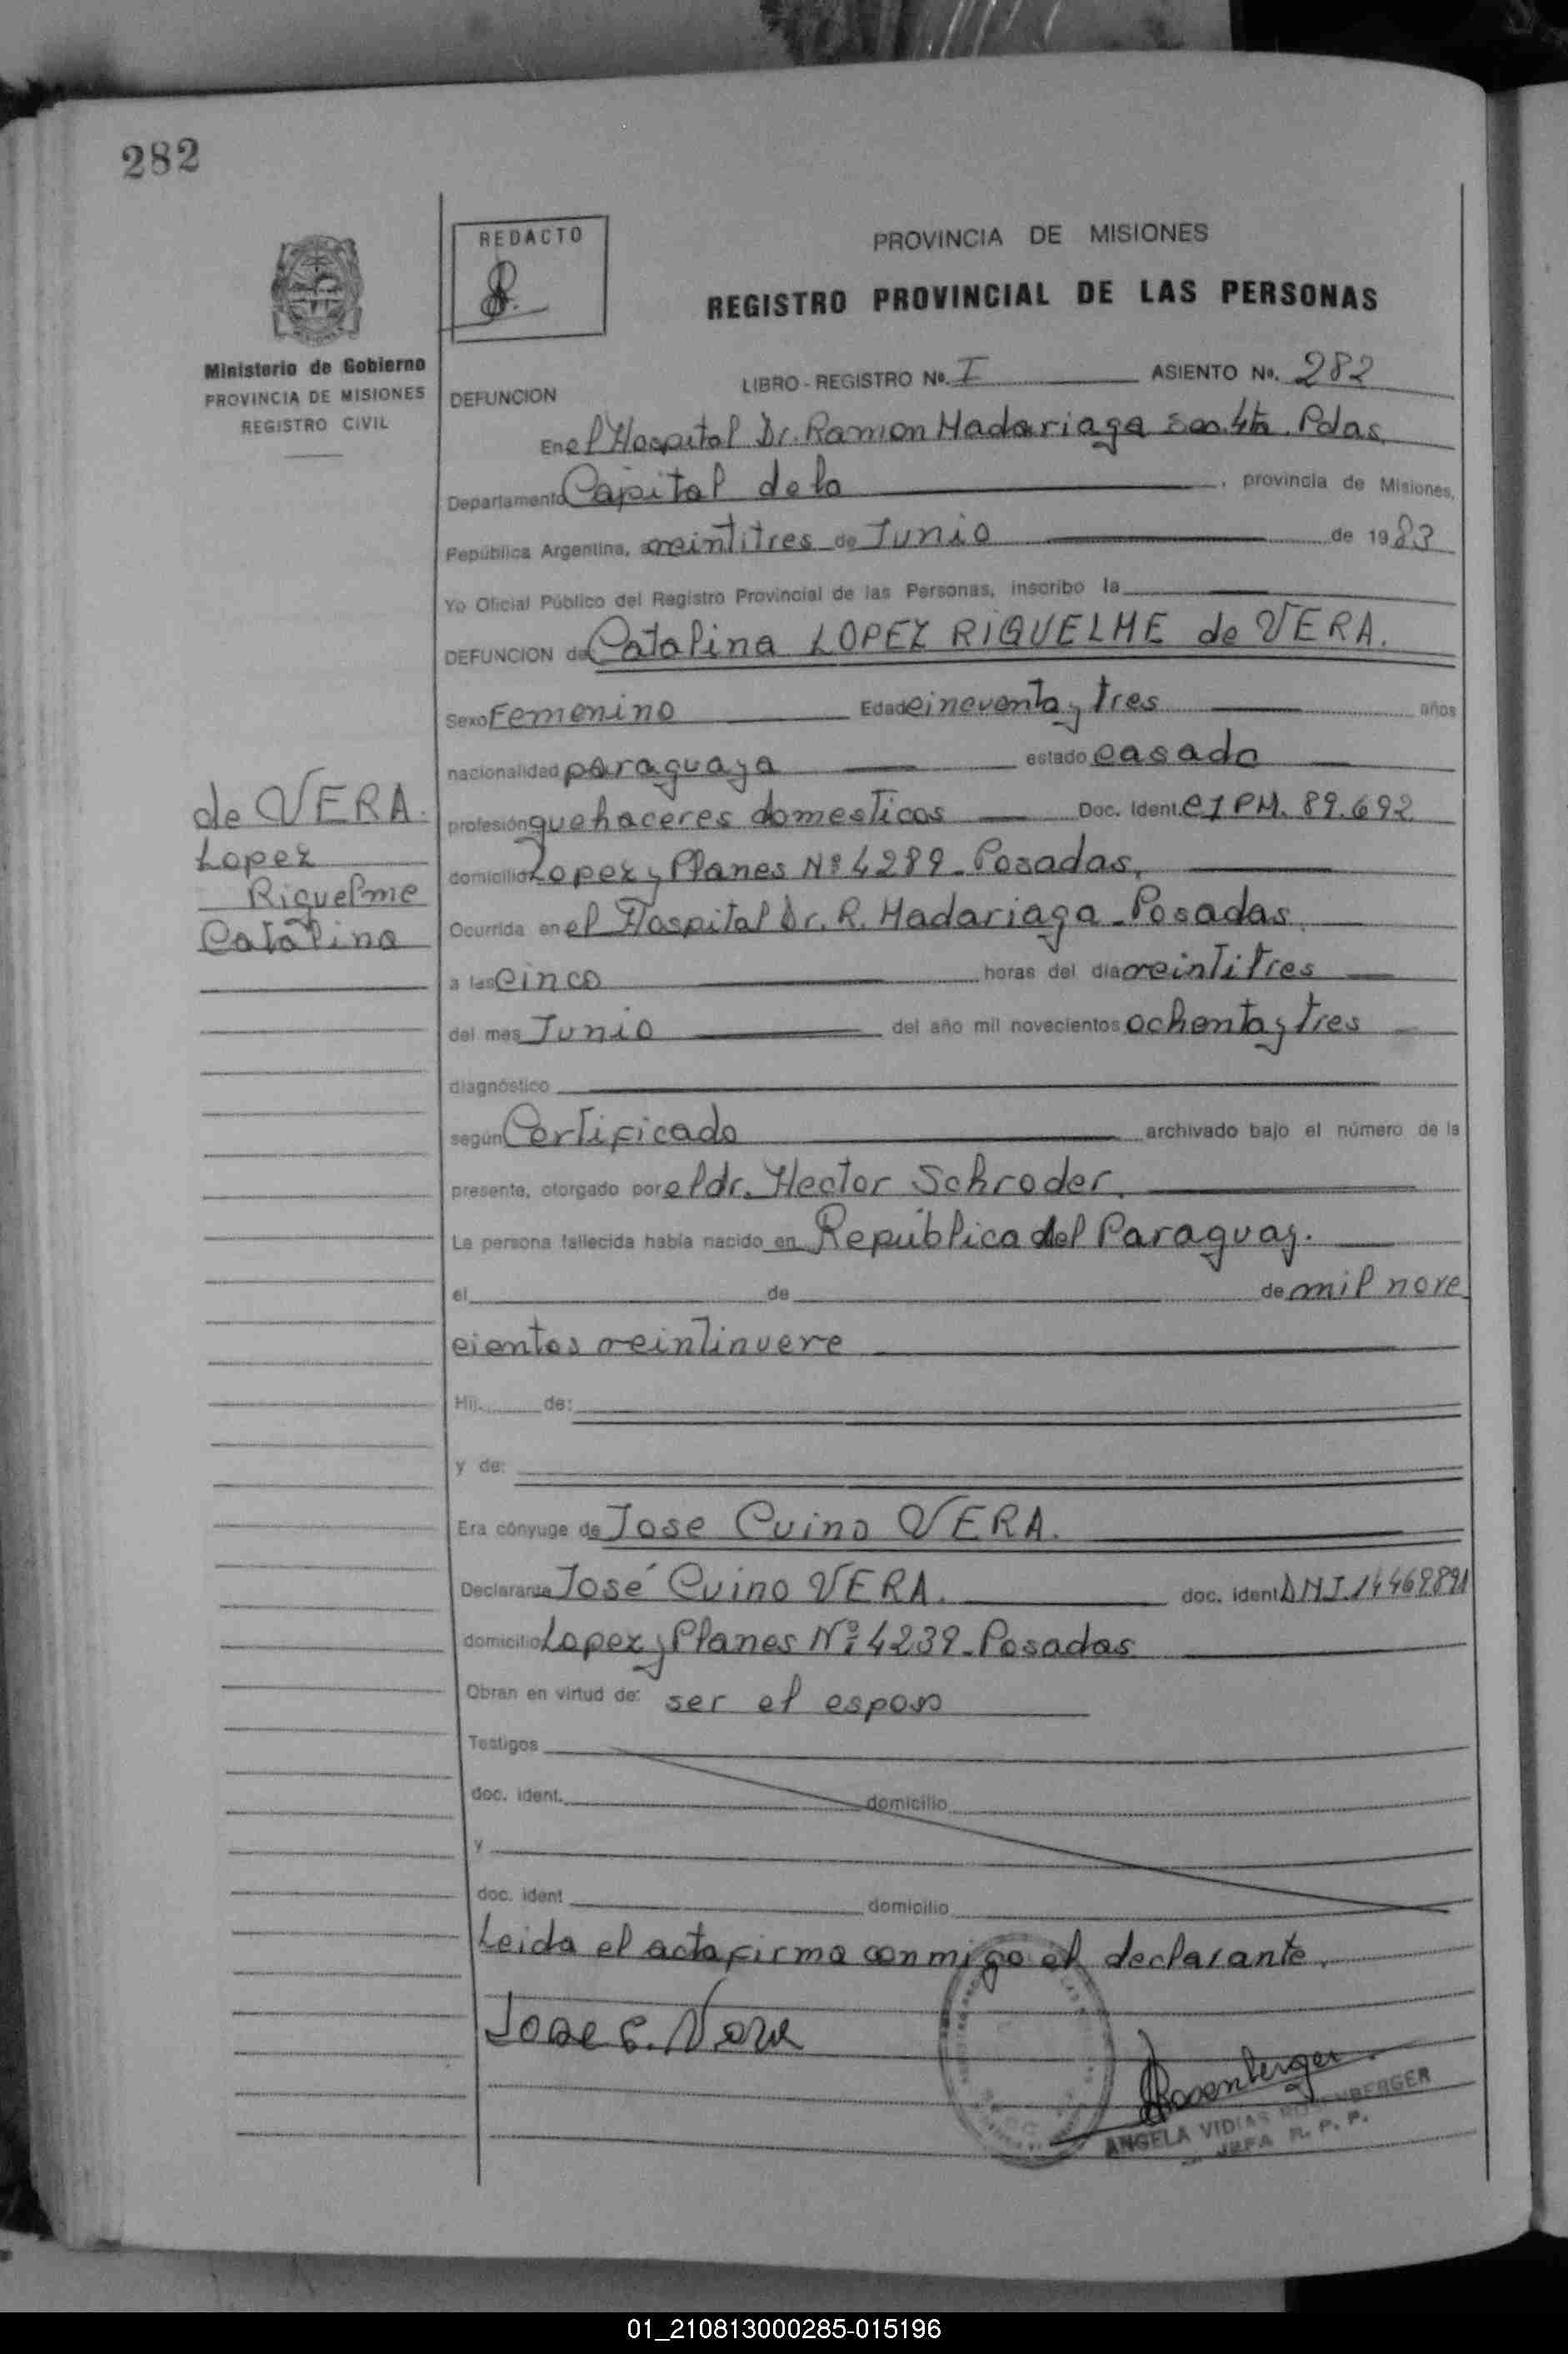 282
REDACTO
PROVINCIA DE MISIONES
REGISTRO PROVINCIAL DE LAS PERSONAS
Ministerio de Gobierno
PROVINCIA DE MISIONES
REGISTRO CIVIL
DEFUNCION
LIBRO - REGISTRO Nº. I ASIENTO Nº. 282
En el Hospital Dr. Ramon Madariaga Sec. 4ta. Pdas.
Departamento Capital de la , provincia de Misiones,
República Argentina, a veintitres de Junio de 1983
Yo Oficial Público del Registro Provincial de las Personas, inscribo la
DEFUNCION de Catalina LOPEZ RIQUELME de VERA.
Sexo Femenino Edad cincuenta y tres años
nacionalidad paraguaya estado casada
profesión quehaceres domesticos Doc. Ident. CI PM. 89.692
domicilio Lopez y Planes Nº 4289 - Posadas.
Ocurrida en el Hospital Dr. R. Madariaga - Posadas.
a las cinco horas del día veintitres
del mes Junio del año mil novecientos ochenta y tres
diagnóstico
según Certificado archivado bajo el número de la
presente, otorgado por el dr. Hector Schroder.
La persona fallecida había nacido en República del Paraguay.
el de de mil nove
cientos veintinueve
Hij. de:
y de:
Era cónyuge de Jose Cuino VERA.
Declarante José Cuino VERA. doc. ident. DNI. 14469891
domicilio Lopez y Planes Nº: 4239 - Posadas
Obran en virtud de: ser el esposo
Testigos
doc. ident. domicilio
y
doc. ident domicilio
Leida el acta firma conmigo el declarante.
Jose C. Vera
Rosenberger
ANGELA VIDIAS ROSENBERGER
JEFA R. P. P.
de VERA.
Lopez
Riquelme
Catalina
01_210813000285-015196